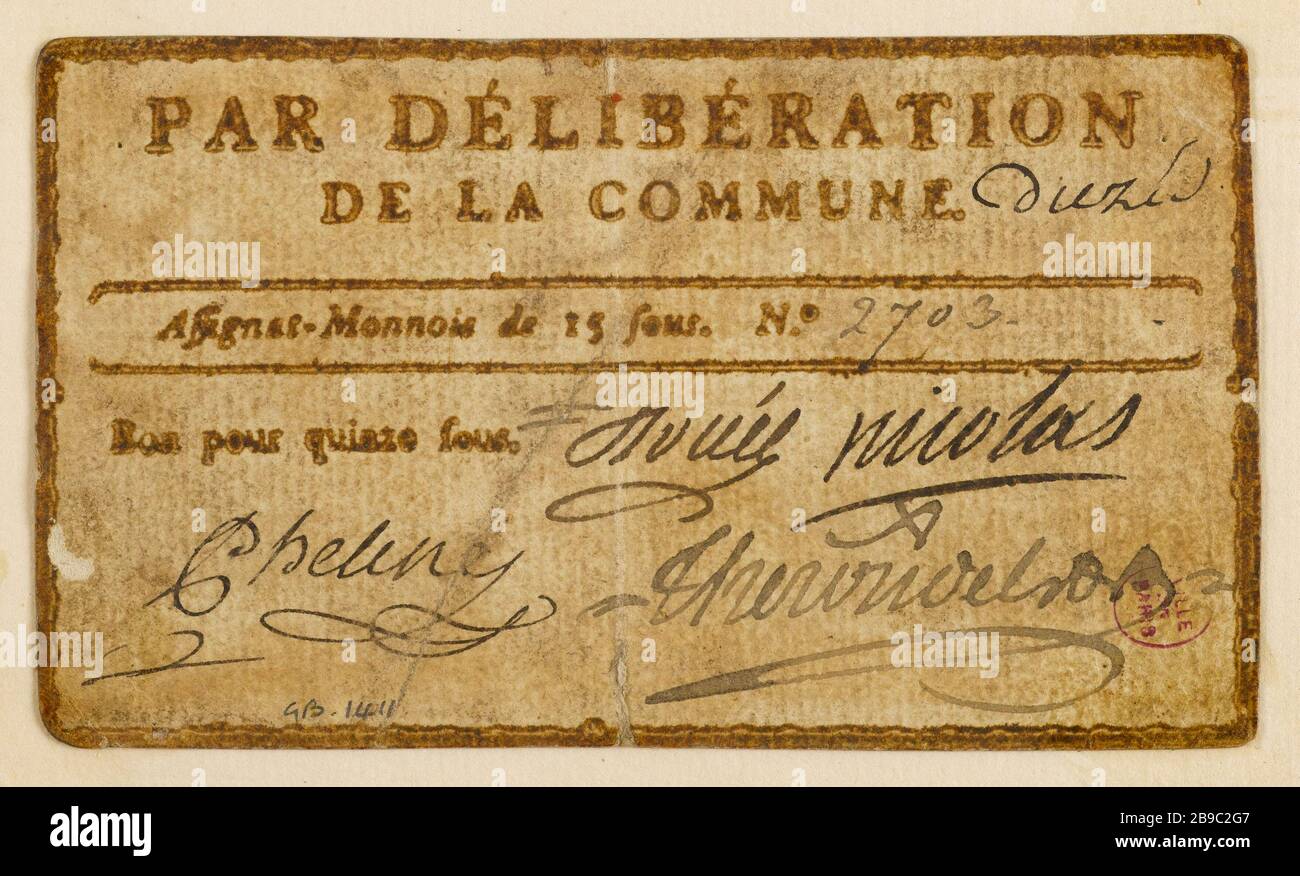 PAR DÉLIBÉRATION
DE LA COMMUNE. Duzès
Aſſignat-Monnoie de 15 ſous. N.º 2703.
Bon pour quinze ſous. nicolas
GB.1411
VILLE DE PARIS
alamy
Image ID: 2B9C2G7
www.alamy.com